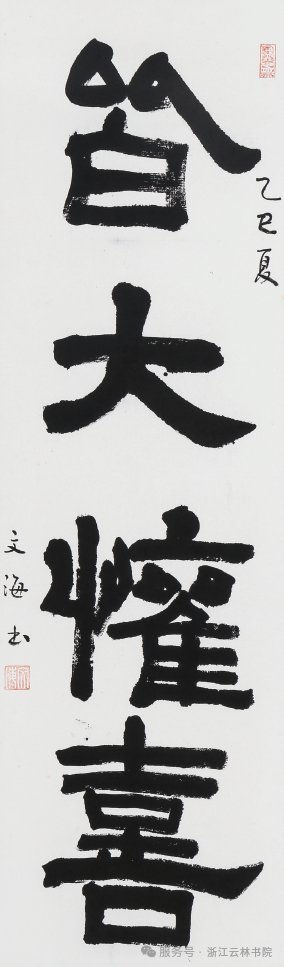 乙巳夏
皆大懽喜
文海书
服务号 · 浙江云林书院